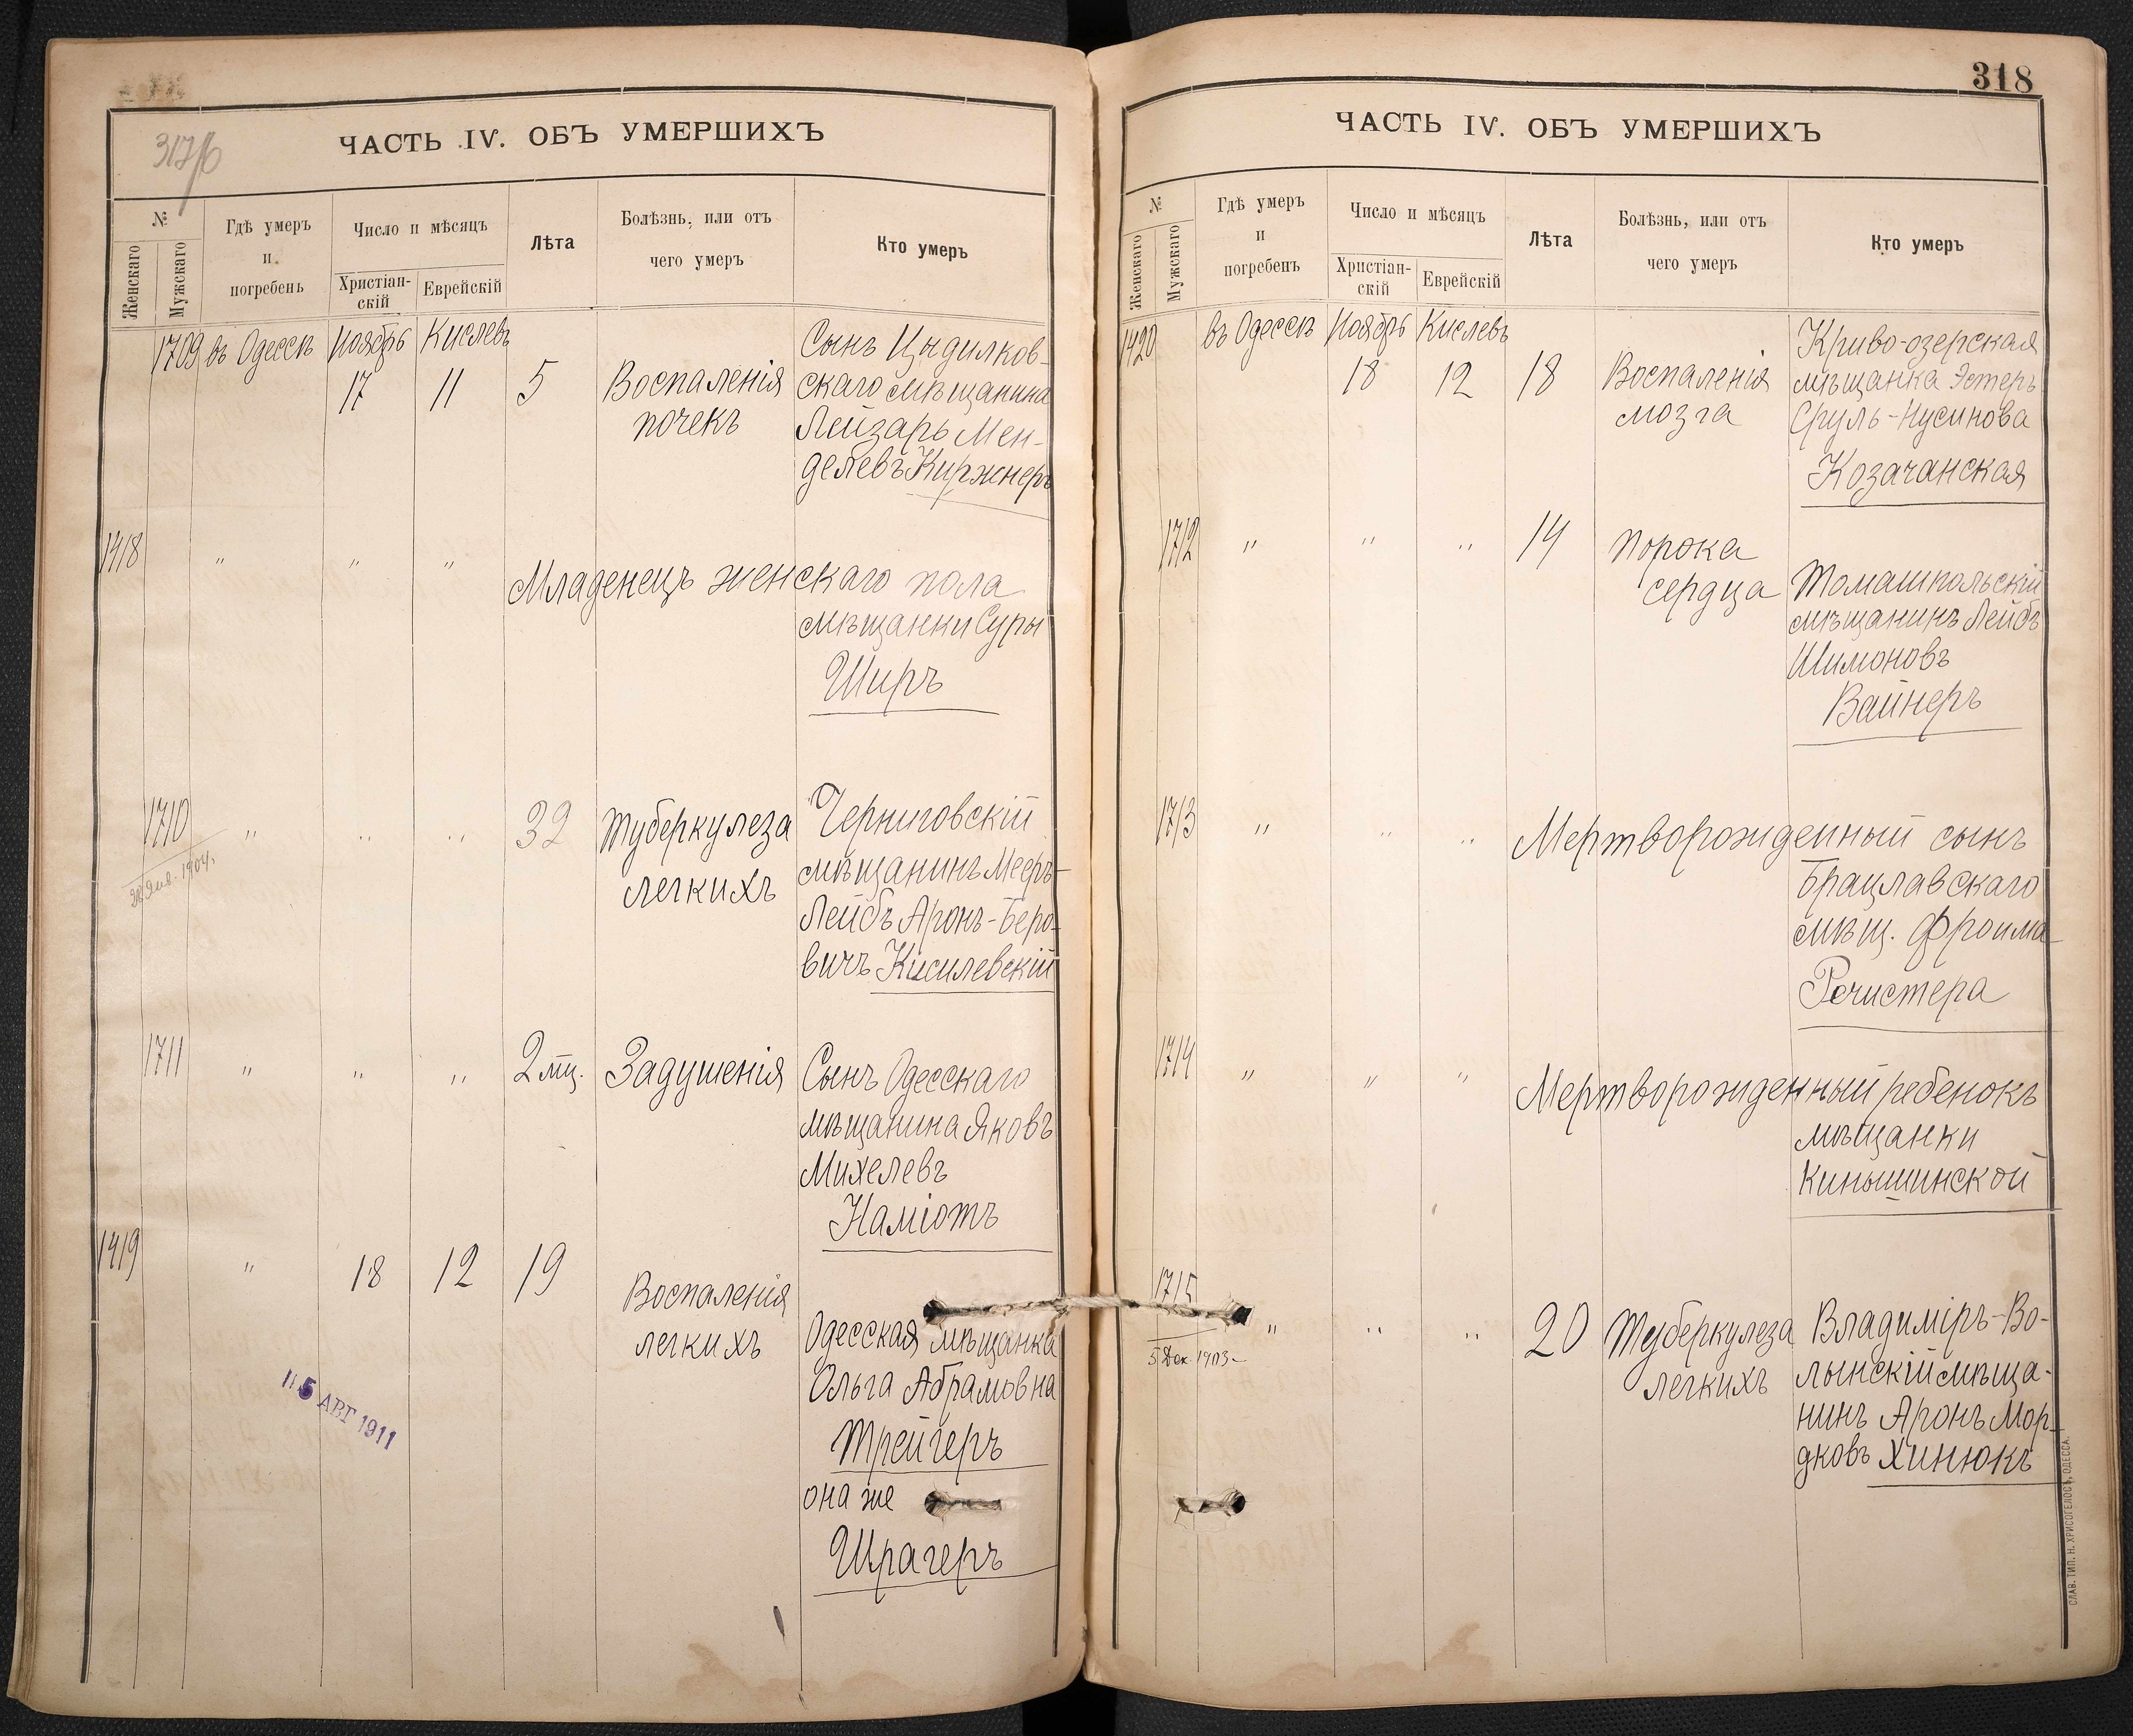 317/б
ЧАСТЬ IV. ОБЪ УМЕРШИХЪ
№
Женскаго
Мужскаго
Гдѣ умеръ
и
погребенъ
Число и мѣсяцъ
Христіан-
скій
Еврейскій
Лѣта
Болѣзнь, или отъ
чего умеръ
Кто умеръ
1709 въ Одессѣ Ноябрь Кислевъ
17 11 5
Воспаленія
почекъ
Сынъ Цыдилков-
скаго мѣщанина
Лейзаръ Мен-
делевъ Киржнеръ
1418 " " "
Младенецъ женскаго пола
мѣщанки Суры
Широ
1710 " " " 32
28 Янв. 1904.
Туберкулеза
легкихъ
Черниговскій
мѣщанинъ Мееръ-
Лейбъ Аронъ-Беро-
вичъ Кисилевскій
1711 " " " 2 мц. Задушенія
Сынъ Одесскаго
мѣщанина Яковъ
Михелевъ
Наміотъ
1419 " 18 12 19
Воспаленія
легкихъ
Одесская мѣщанка
Ольга Абрамовна
Трейгеръ
она же
Шрагеръ
5 АВГ 1911
318
ЧАСТЬ IV. ОБЪ УМЕРШИХЪ
№
Женскаго
Мужскаго
Гдѣ умеръ
и
погребенъ
Число и мѣсяцъ
Христіан-
скій
Еврейскій
Лѣта
Болѣзнь, или отъ
чего умеръ
Кто умеръ
1420 въ Одессѣ Ноябрь Кислевъ
18 12 18
Воспаленія
мозга
Криво-озерская
мѣщанка Эстеръ
Сруль-Нусинова
Козачанская
1712 " " " 14
порока
сердца
Томашпольскій
мѣщанинъ Лейбъ
Шимоновъ
Вайнеръ
1713 " " "
Мертворожденный сынъ
Брацлавскаго
мѣщ. Фроима
Речистера
1714 " " "
Мертворожденный ребенокъ
мѣщанки
Киньшинской
1715 " " " 20
5 Дек 1903
Туберкулеза
легкихъ
Владиміръ-Во-
лынскій мѣща-
нинъ Аронъ Мор-
дковъ Хинюкъ
СЛАВ. ТИП. Н. ХРИСОГЕЛОСЪ, ОДЕССА.